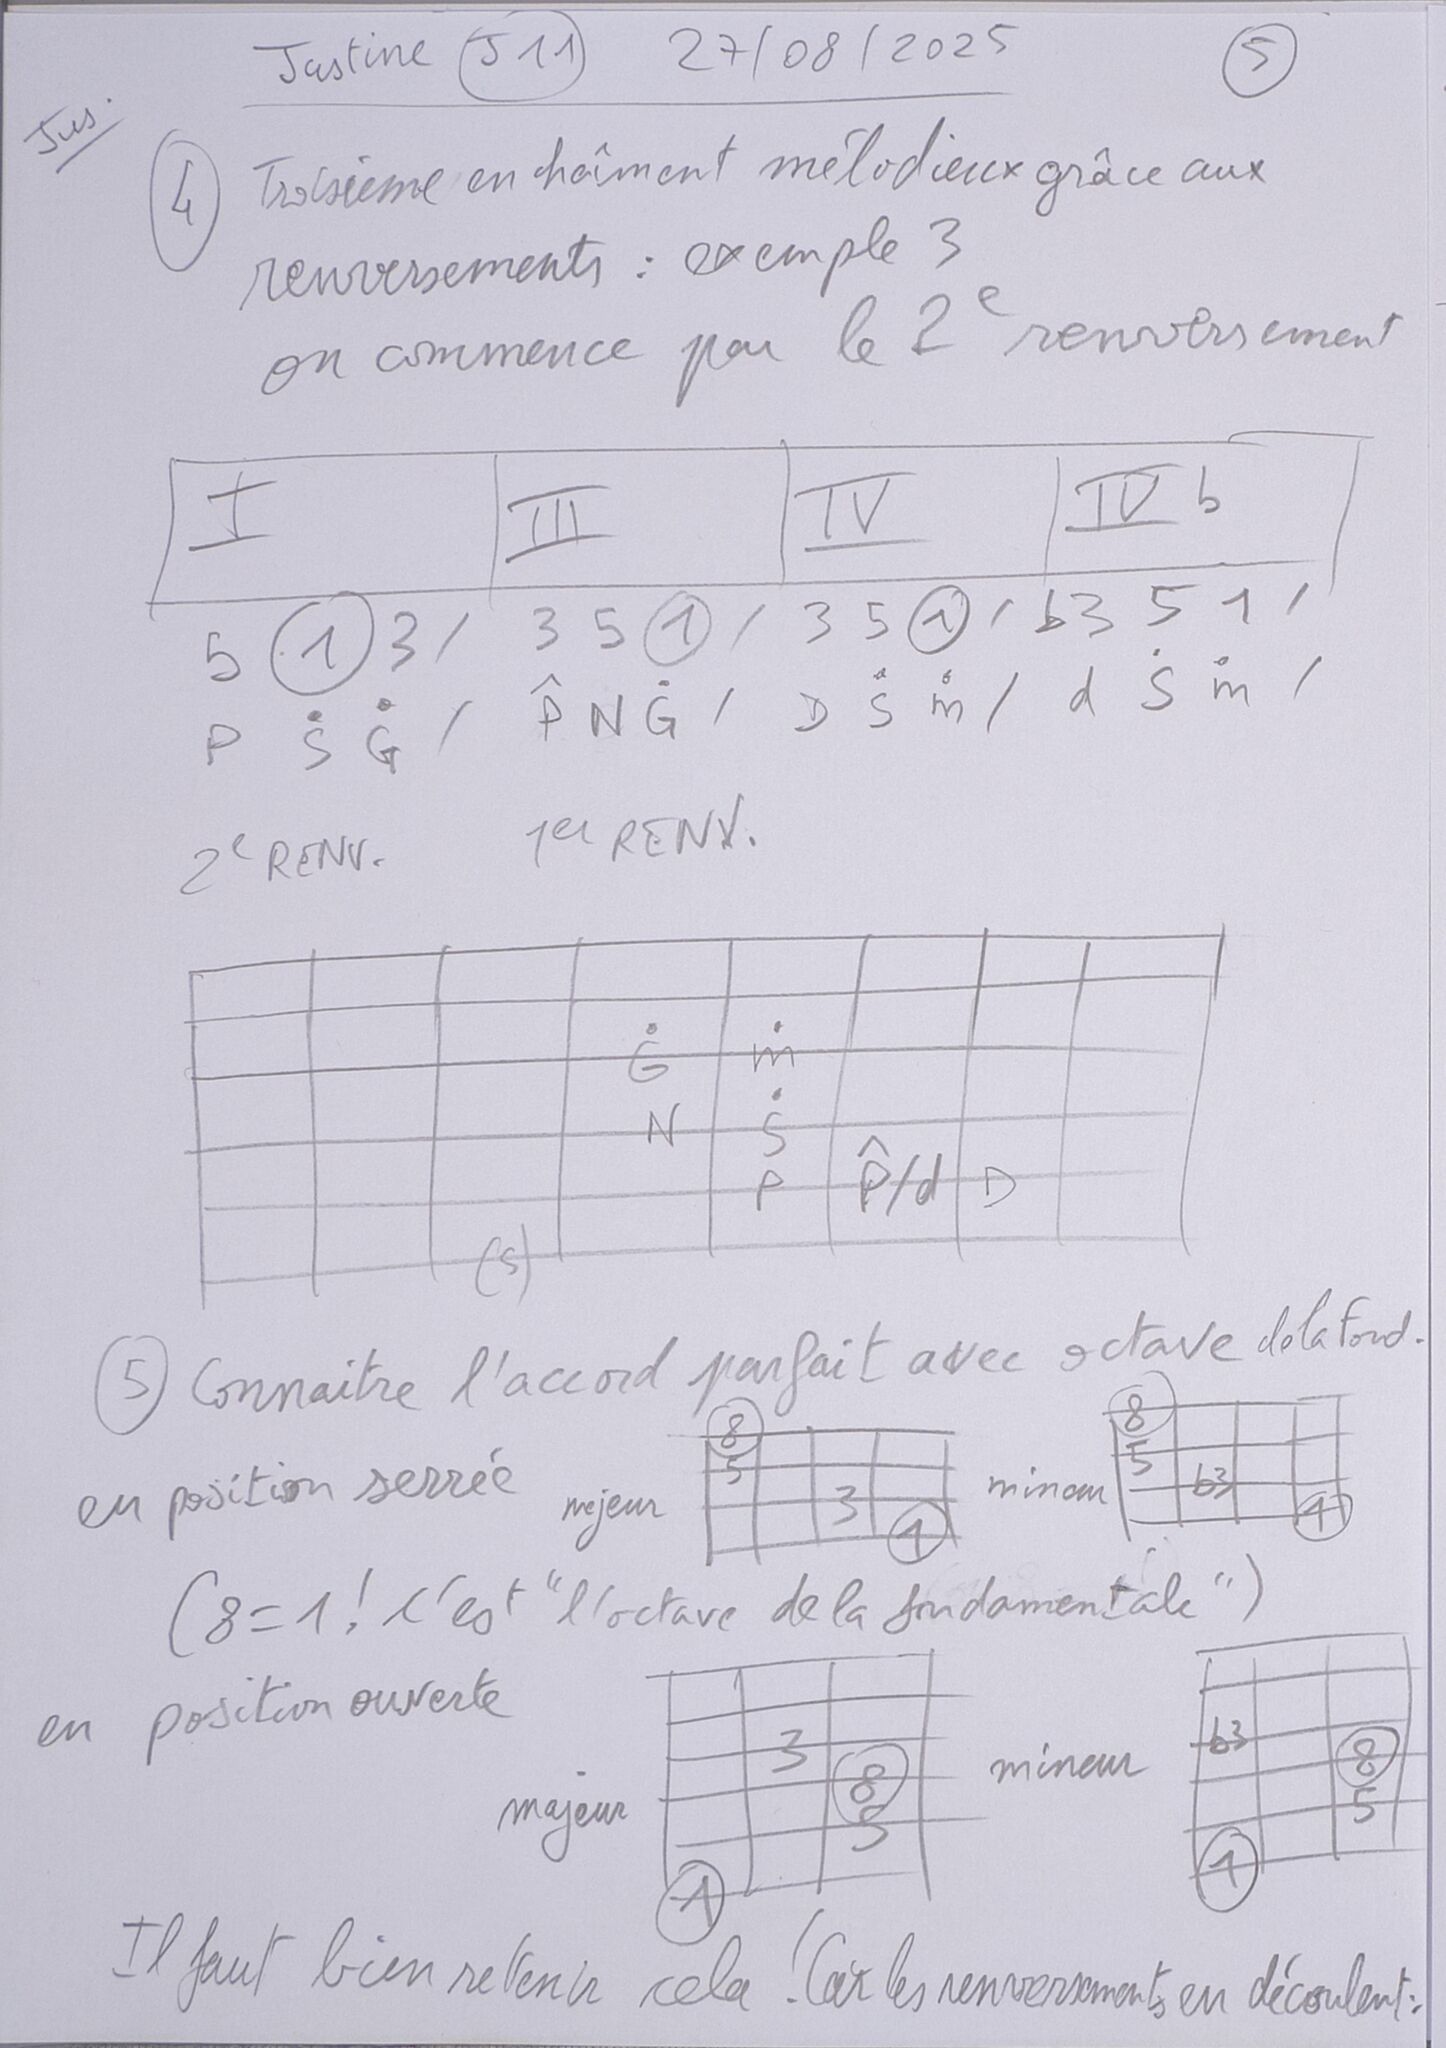 Justine J11 27/08/2025 5
Jus.
4 Troisième enchaîment mélodieux grâce aux
renversements : exemple 3
on commence par le 2e renversement
I III IV IVb
5 1 3 / 3 5 1 / 3 5 1 / b3 5 1 /
P Ṡ Ġ / P̂ N Ġ / D Ṡ ṁ / d Ṡ ṁ /
2e RENV. 1er RENV.
Ġ ṁ
N Ṡ
P P̂/d D
(S)
5 Connaitre l'accord parfait avec octave de la fond.
en position serrée majeur 8 5 3 1 mineur 8 5 b3 1
(8=1! c'est "l'octave de la fondamentale")
en position ouverte
majeur 3 8 5 1 mineur b3 8 5 1
Il faut bien retenir cela ! Car les renversements en découlent :